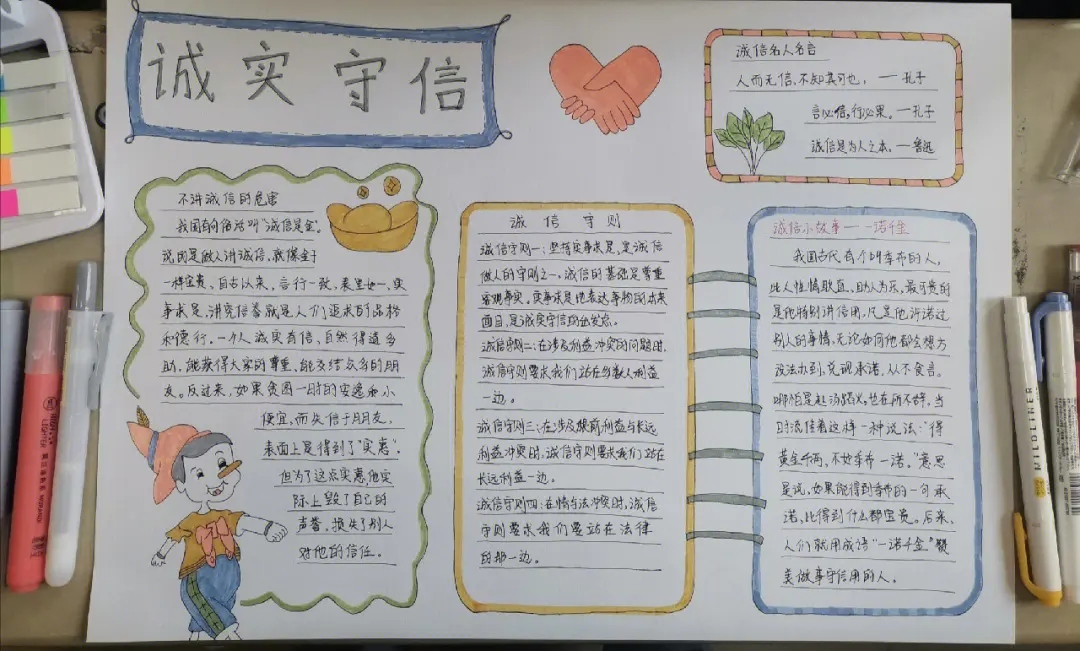 诚实守信
诚信名人名言
人而无信,不知其可也, 一孔子
言必信,行必果。一孔子
诚信是为人之本。一鲁迅
不讲诚信的危害
我国有句俗话叫"诚信是金"。
说的是做人讲诚信,就像金子
一样宝贵,自古以来,言行一致,表里如一,实
事求是,讲究信誉就是人们追求的品格
和德行。一个人诚实有信,自然得道多
助,能获得大家的尊重,能交结众多的朋
友。反过来,如果贪图一时的安逸和小
便宜,而失信于朋友,
表面上是得到了"实惠"。
但为了这点实惠,他实
际上毁了自己的
声誉,损失了别人
对他的信任。
诚信守则
诚信守则一:坚持实事求是,是诚信
做人的守则之一,诚信的基础是尊重
客观事实。实事求是地表达事物的本来
面目,是诚实守信的出发点。
诚信守则二:在涉及利益冲突的问题时,
诚信守则要求我们站在多数人利益
一边。
诚信守则三:在涉及眼前利益与长远
利益冲突时,诚信守则要求我们站在
长远利益一边。
诚信守则四:在情与法冲突时,诚信
守则要求我们要站在法律
的那一边。
诚信小故事一一诺千金
我国古代有个叫季布的人,
此人性情耿直、助人为乐,最可贵的
是他特别讲信用,凡是他许诺过
别人的事情,无论如何他都会想方
设法办到,兑现承诺,从不食言。
哪怕是赴汤蹈火,也在所不辞。当
时流传着这样一种说法:"得
黄金千两,不如季布一诺。"意思
是说,如果能得到季布的一句承
诺,比得到什么都宝贵。后来,
人们就用成语"一诺千金"赞
美做事守信用的人。
MILDLINER